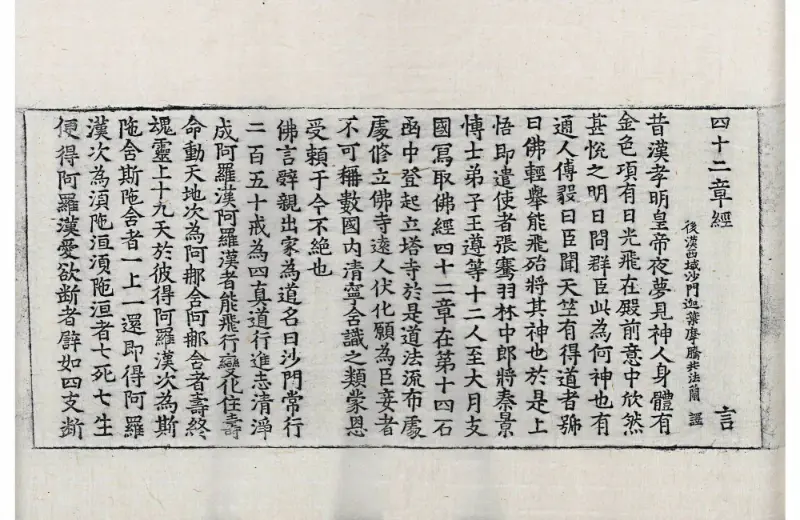 四十二章經 言
後漢西域沙門迦葉摩騰共法蘭 譯
昔漢孝明皇帝夜夢見神人身體有
金色項有日光飛在殿前意中欣然
甚恱之明日問群臣此為何神也有
通人傅毅曰臣聞天竺有得道者號
曰佛輕舉能飛殆將其神也於是上
悟即遣使者張騫羽林中郎將秦景
博士弟子王遵等十二人至大月支
國冩取佛經四十二章在第十四石
函中登起立塔寺於是道法流布處
處修立佛寺遠人伏化願為臣妾者
不可稱數國内清寧含識之類蒙恩
受賴于今不絶也
佛言辭親出家為道名曰沙門常行
二百五十戒為四真道行進志清淨
成阿羅漢阿羅漢者能飛行變化住壽
命動天地次為阿那含阿那含者壽終
魂靈上十九天於彼得阿羅漢次為斯
陁含斯陁含者一上一還即得阿羅
漢次為湏陁洹湏陁洹者七死七生
便得阿羅漢愛欲断者譬如四支断